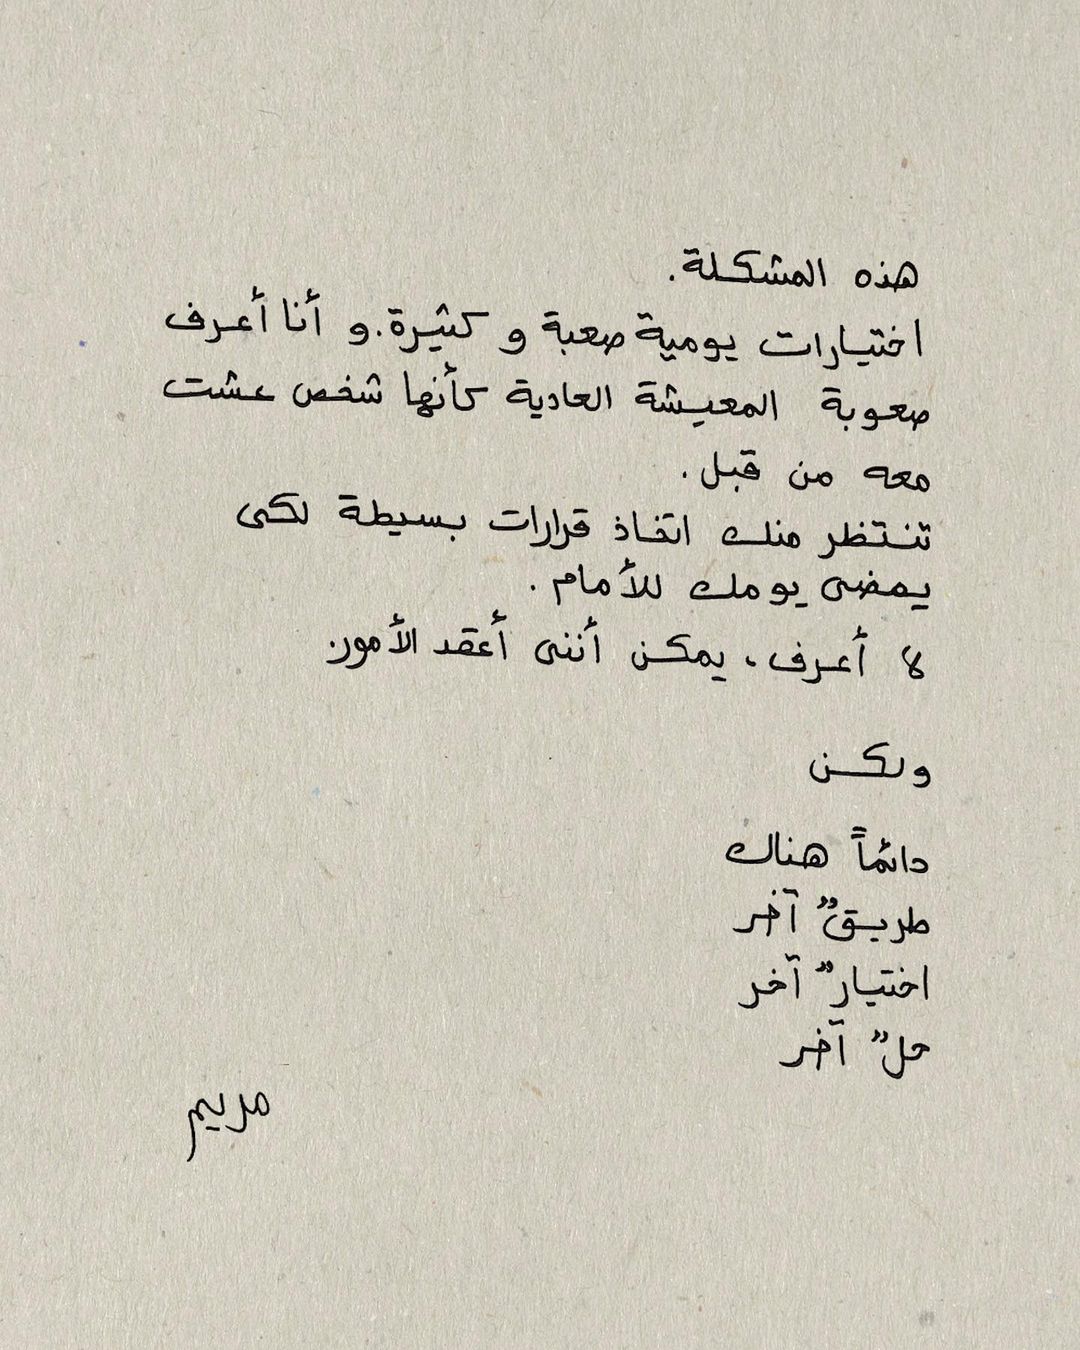 هذه المشكلة.
اختيارات يومية صعبة و كثيرة. و أنا أعرف
صعوبة المعيشة العادية كأنها شخص عشت
معه من قبل.
تنتظر منك اتخاذ قرارات بسيطة لكى
يمضى يومك للأمام.
لا أعرف، يمكن أننى أعقد الأمور.
ولكن
دائماً هناك
طريقٌ آخر
اختيارٌ آخر
حلٌ آخر
مريم